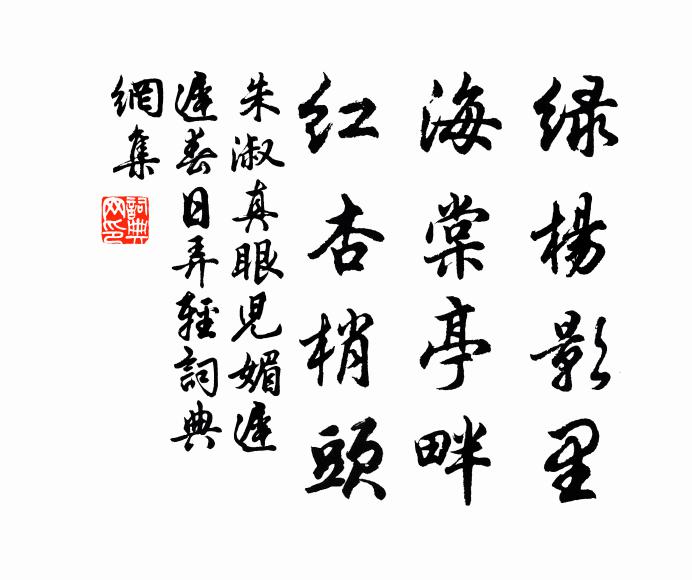 绿楊影里
海棠亭畔
紅杏梢頭
朱淑真眼児媚遲
遲春日弄輕詞典
網集
詞典
网印